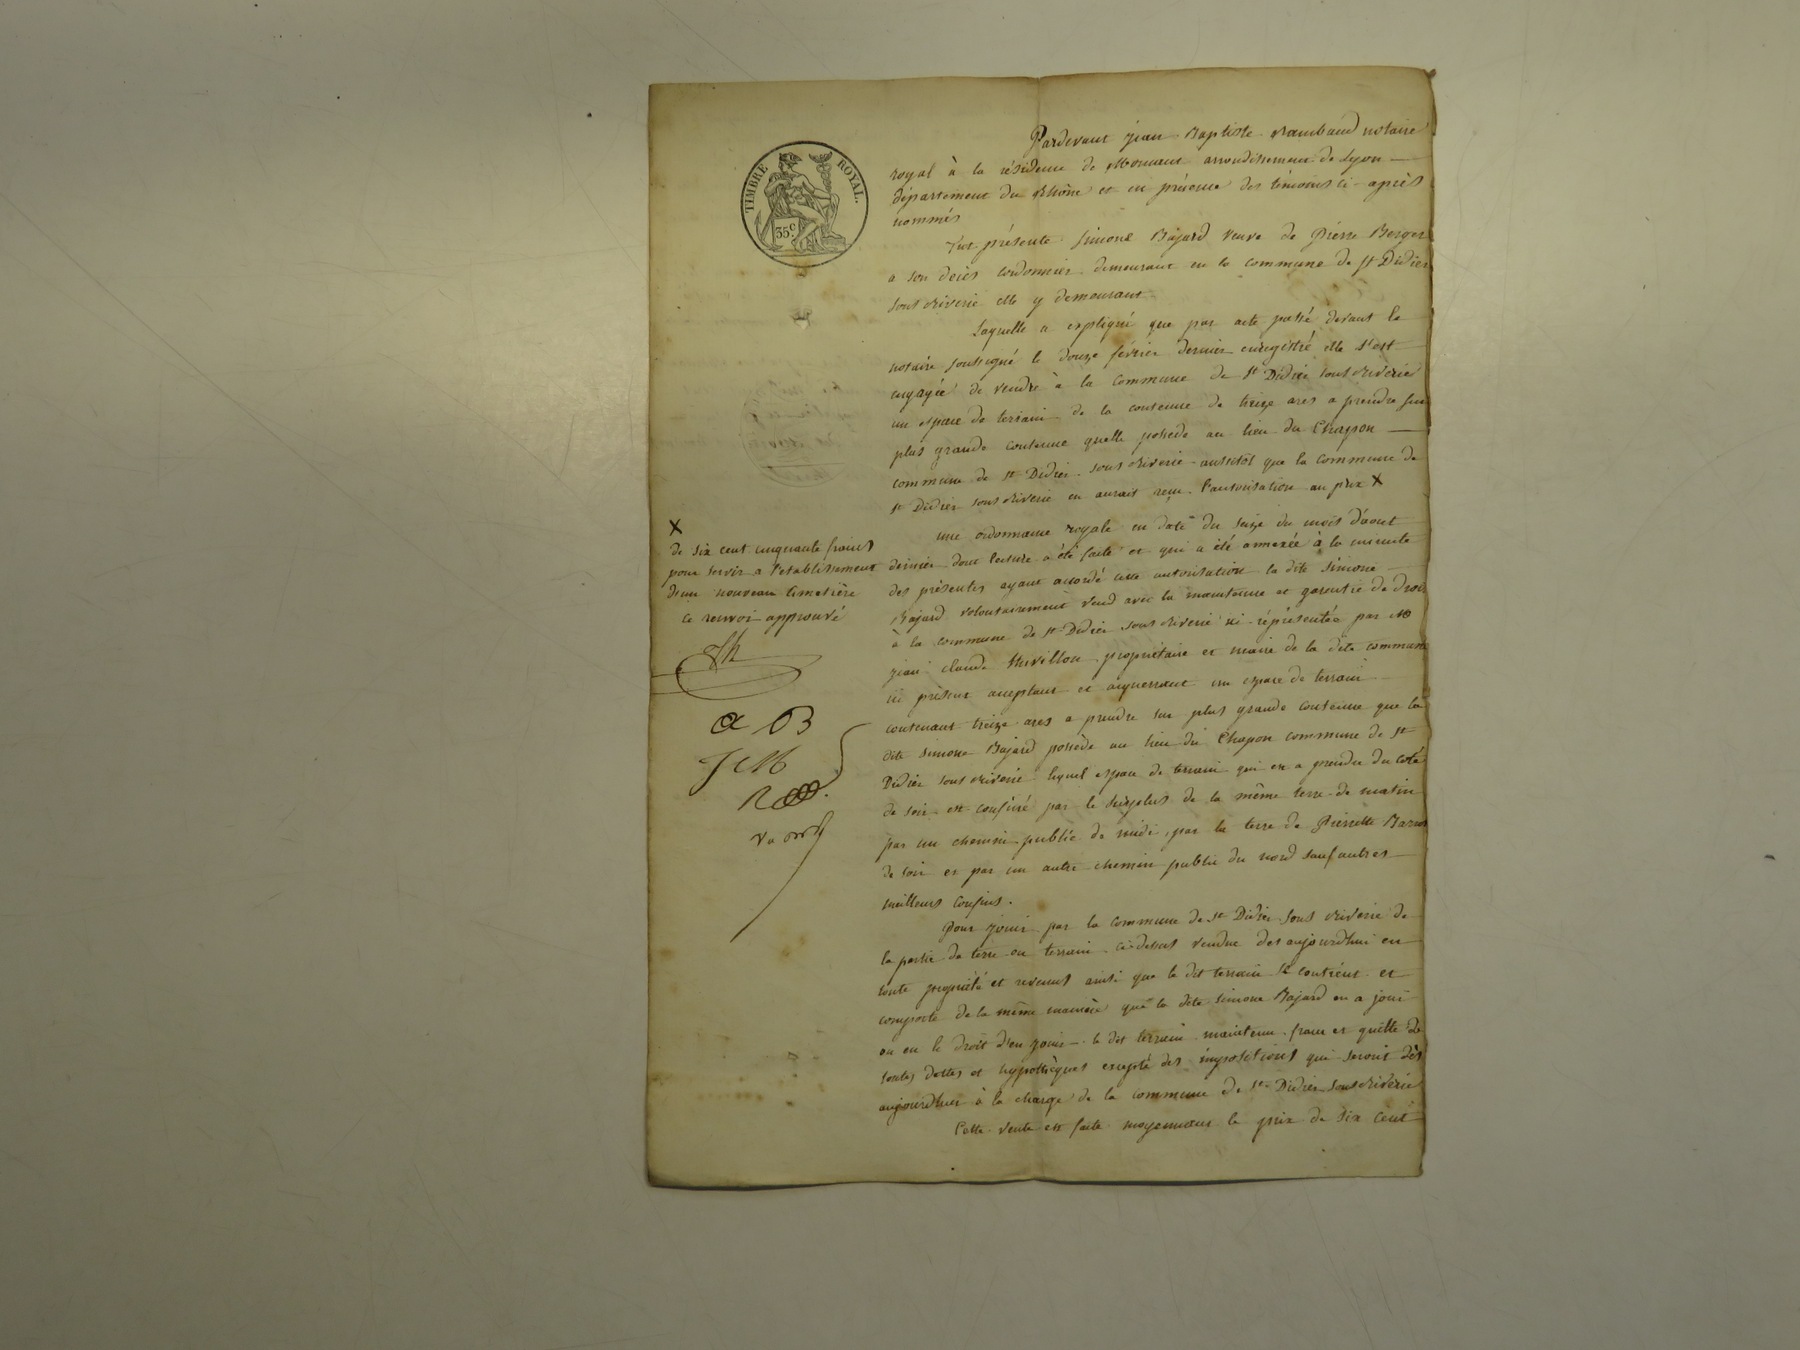 TIMBRE ROYAL.
35c.
Pardevant jean Baptiste Rambaud notaire
royal à la résidence de Mornant arrondissement de Lyon
département du Rhône et en présence des témoins ci-après
nommés
Fut présente Simone Bajard veuve de Pierre Berger
a son décès cordonnier demeurant en la commune de st Didier
sous Riverie elle y demeurant
Laquelle a expliqué que par acte passé devant le
notaire soussigné le douze février dernier enregistré elle s'est
engagée de vendre à la commune de st Didier sous Riverie
un espace de terrain de la contenue de treize ares a prendre sur
plus grande contenue quelle possede au lieu du Chapon
commune de st Didier sous Riverie aussitôt que la commune de
st Didier sous Riverie en aurait reçu l'autorisation au prix X
X
de six cent cinquante francs
pour servir a l'etablissement
d'un nouveau cimetière
ce renvoi approuvé
une ordonnance royale en date du seize du mois d'aout
dernier dont lecture a été faite et qui a été annexée à la minute
des présentes ayant accordé cette autorisation la dite Simone
Bajard volontairement vend avec la maintenue et garentie de droit
à la commune de st Didier sous Riverie ici représentée par
jean claude propriétaire et maire de la dite commune
ici présent acceptant et acquerrant un espace de terrain
contenant treize ares a prendre sur plus grande contenue que la
dite Simone Bajard possède au lieu du Chapon commune de st
Didier sous Riverie lequel espace de terrain qui est a prendre du coté
de soir est confiné par le surplus de la même terre de matin
par un chemin public de midi, par la terre de Pierrette
de soir et par un autre chemin public du nord sauf autres
meilleurs confins.
a B
J C M
Vu
Pour jouir par la commune de st Didier sous Riverie de
la partie de terre ou terrain ci-dessus vendue des aujourdhui en
toute propriété et revenus ainsi que le dit terrain se contient et
comporte de la même manière que la dite Simone Bajard en a joui
ou eu le droit d'en jouir le dit terrain maintenu franc et quitte de
toutes dettes et hypothèques excepté des impositions qui seront dès
aujourdhui à la charge de la commune de st Didier sous Riverie
Cette vente est faite moyennant le prix de six cent